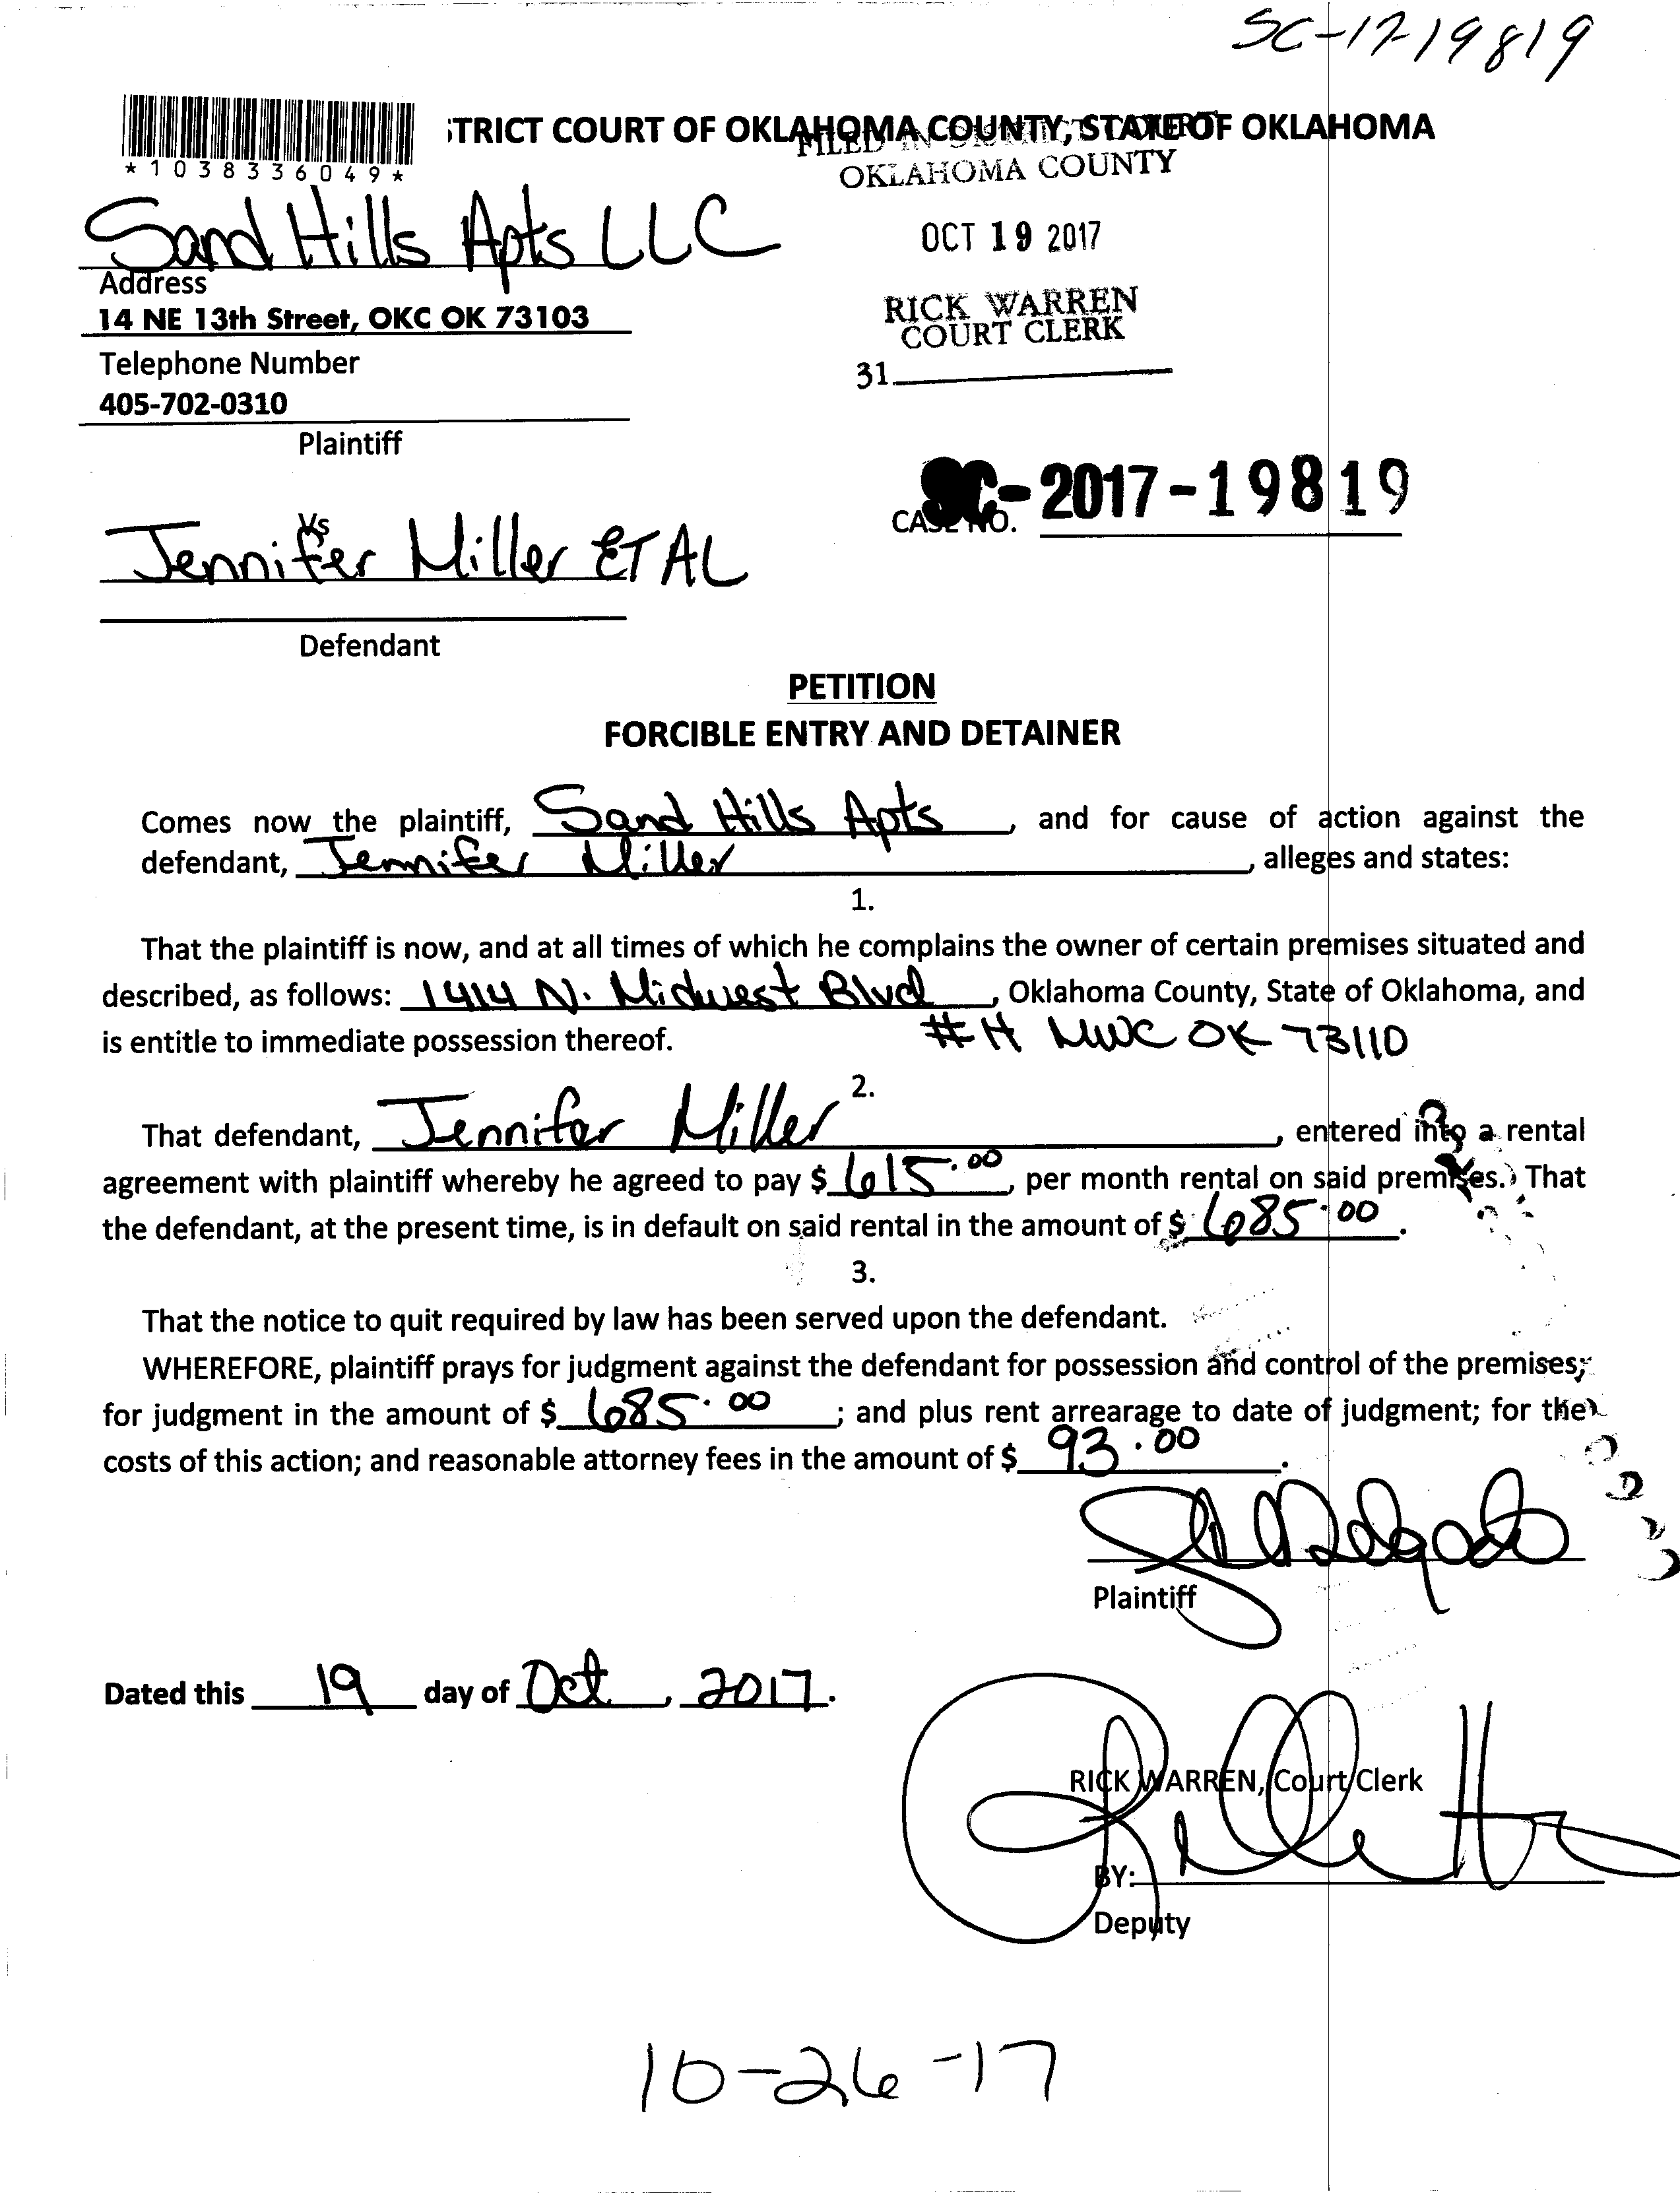 SC-17-19819
*1038336049*
TRICT COURT OF OKLAHOMA COUNTY, STATE OF OKLAHOMA
FILED IN DISTRICT COURT
OKLAHOMA COUNTY
Sand Hills Apts LLC
OCT 19 2017
Address
14 NE 13th Street, OKC OK 73103
RICK WARREN
COURT CLERK
Telephone Number
31
405-702-0310
Plaintiff
SC-2017-19819
CASE NO.
Vs
Jennifer Miller ET AL
Defendant
PETITION
FORCIBLE ENTRY AND DETAINER
Comes now the plaintiff, Sand Hills Apts, and for cause of action against the
defendant, Jennifer Miller, alleges and states:
1.
That the plaintiff is now, and at all times of which he complains the owner of certain premises situated and
described, as follows: 1414 N. Midwest Blvd, Oklahoma County, State of Oklahoma, and
#H MWC OK 73110
is entitle to immediate possession thereof.
2.
That defendant, Jennifer Miller, entered into a rental
agreement with plaintiff whereby he agreed to pay $ 615.00, per month rental on said premises. That
the defendant, at the present time, is in default on said rental in the amount of $ 685.00.
3.
That the notice to quit required by law has been served upon the defendant.
WHEREFORE, plaintiff prays for judgment against the defendant for possession and control of the premises;
for judgment in the amount of $ 685.00; and plus rent arrearage to date of judgment; for the
costs of this action; and reasonable attorney fees in the amount of $ 93.00.
Plaintiff
Dated this 19 day of Oct, 2017.
RICK WARREN, Court Clerk
BY:
Deputy
10-26-17